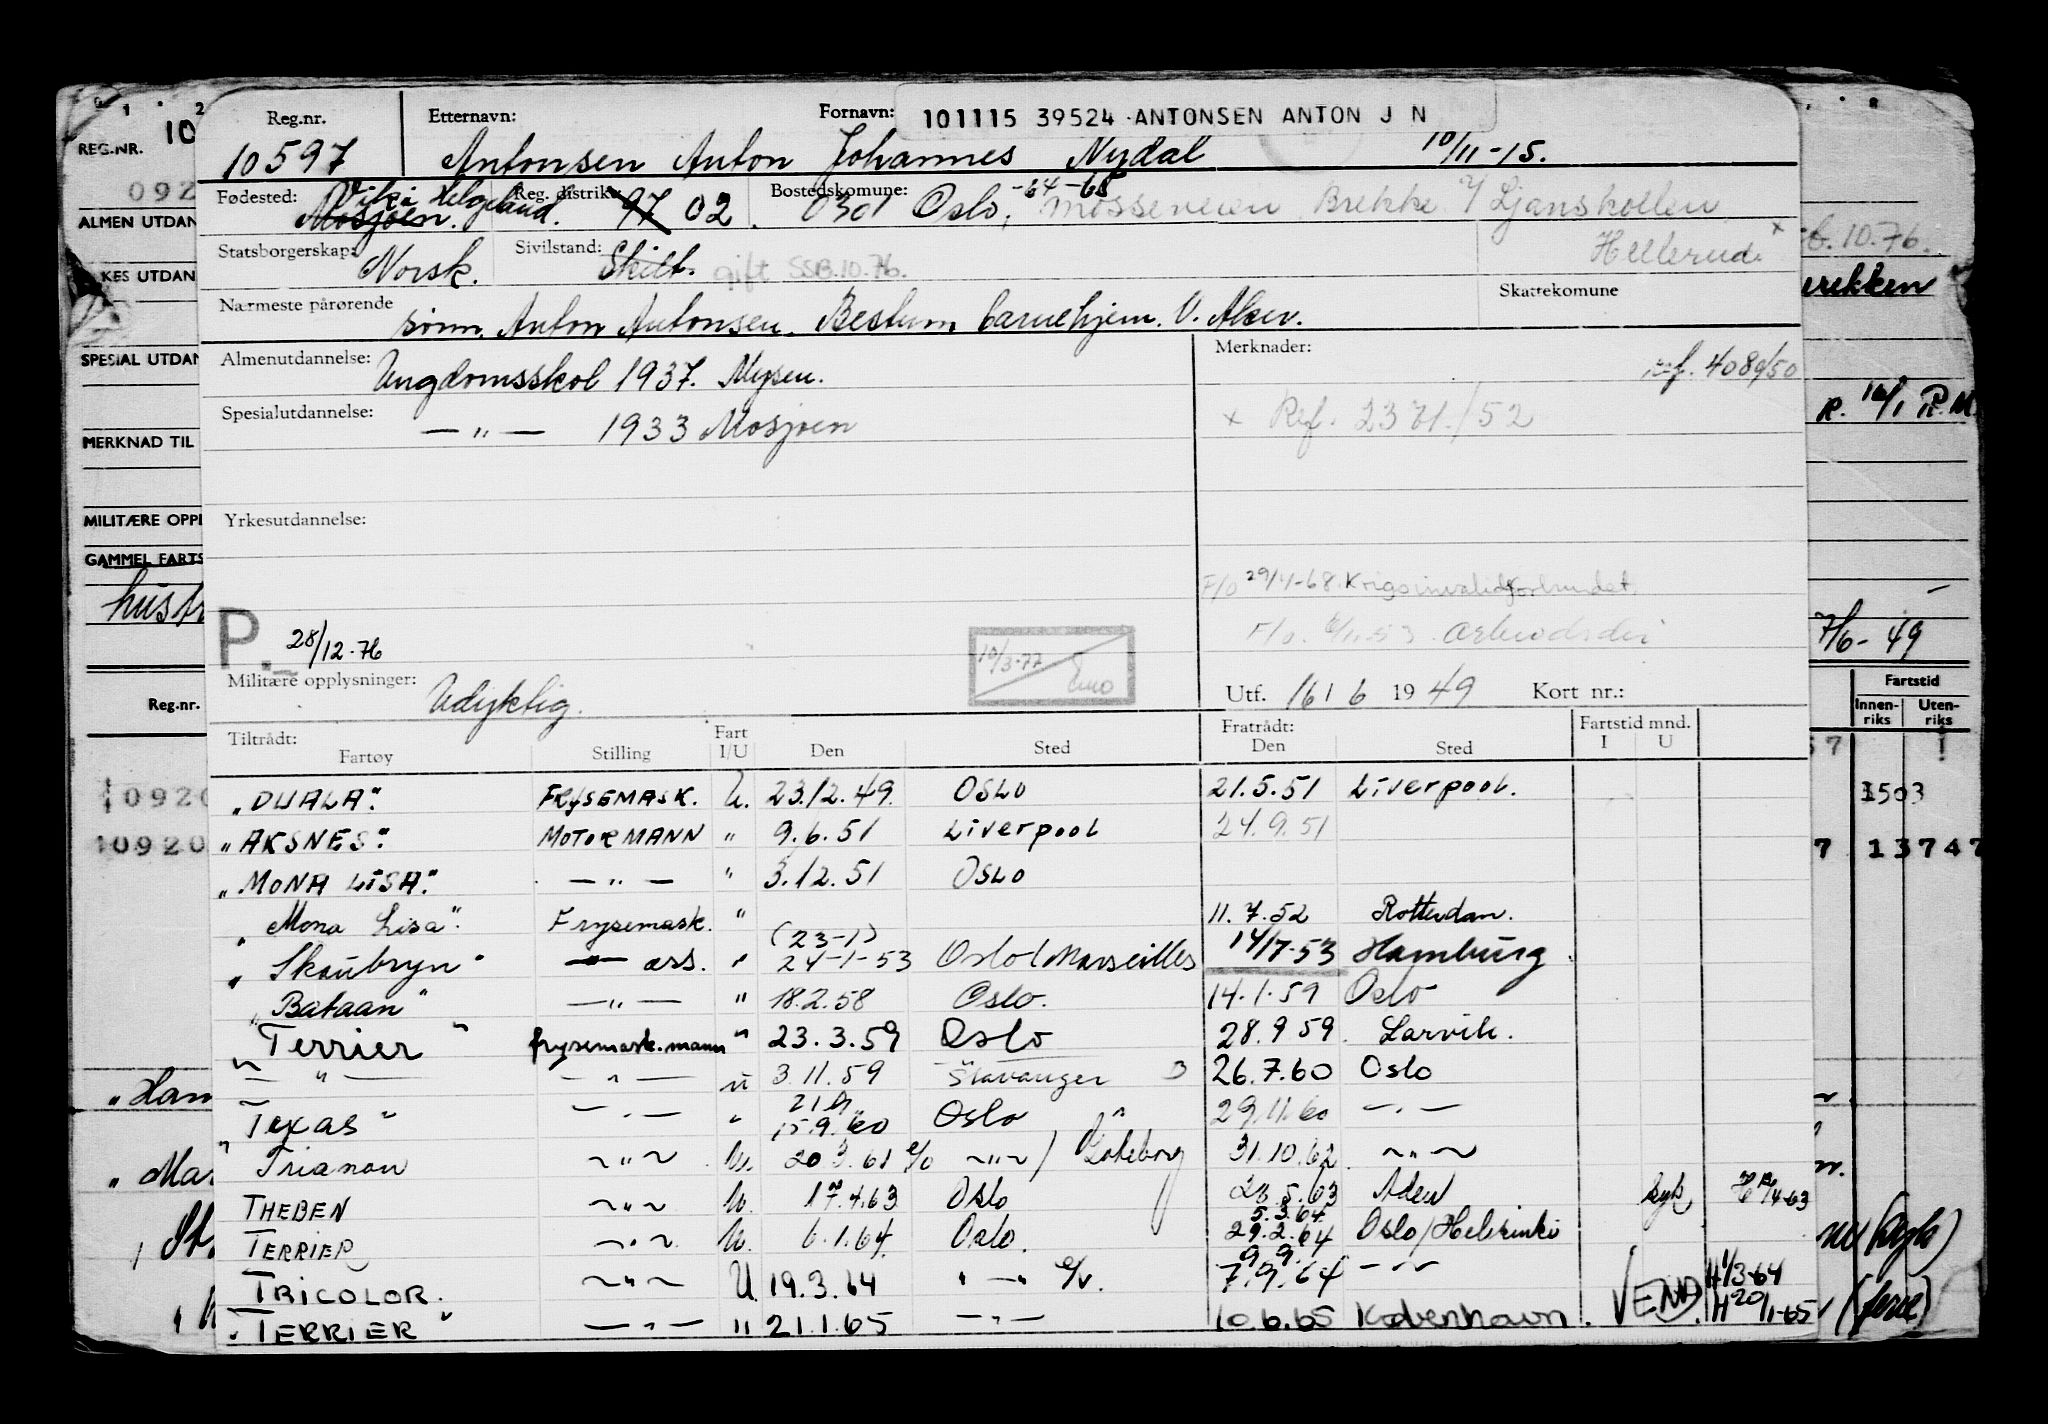 Reg.nr. Etternavn: Fornavn: 101115 39524 ANTONSEN ANTON J N
10597 Antonsen Anton Johannes Nydal 10/11-15.
Fødested: Vik i Helgeland. Mosjøen. Reg. distrikt: 97 02. Bostedskomune: 0301 Oslo, -64-68 Mosseveien Brekke Ljanskollen
Hellerud x
Statsborgerskap: Norsk. Sivilstand: Skilt. gift SSB.10.76.
Nærmeste pårørende Skattekomune
sønn. Anton Antonsen. Bestum barnehjem. V. Aker.
Almenutdannelse: Ungdomsskol 1937. Mysen. Merknader: ref. 4089/50
Spesialutdannelse: — " — 1933 Mosjøen x Ref. 2371/52
Yrkesutdannelse:
F/o 29/1-68. Krigsinvalidforbundet.
P. 28/12-76 10/3-77
Militære opplysninger: Udyktig. Utf. 16/6 1949 Kort nr.:
Tiltrådt: Fart Fratrådt: Fartstid mnd.
Fartøy Stilling I/U Den Sted Den Sted I U
"DUALA". FRYSEMASK. U. 23.12.49. OSLO 21.5.51 Liverpool.
"AKSNES". MOTORMANN " 9.6.51 Liverpool 24.9.51
"MONA LISA". — " — " 3.12.51 OSLO
"Mona Lisa". Frysemask. " 11.7.52 Rotterdam.
"Skaubryn" — ass. " (23-1) 24-1-53 Oslo/Marseilles 14/7-53 Hamburg
"Bataan" — " — " 18.2.58 Oslo. 14.1.59 Oslo
"Terrier" frysemask.mann " 23.3.59 Oslo 28.9.59 Larvik.
— " — — " — U 3.11.59 Stavanger 26.7.60 Oslo
"Texas" — " — " 21/9 15.9.60 Oslo 29.11.60 — " —
"Trianon — " — U. 20.3.61 e/o — " — / Göteborg 31.10.62 — " —
THEBEN — " — U. 17.4.63 Oslo 28.5.63 Aden syk
TERRIER — " — U. 6.1.64. Oslo. 5.3.64 29.2.64 Oslo/Helsinki
TRICOLOR. — " — U 19.3.64 " — " e/v. 9.9. 7.9.64 — " — H 1/3-64
"TERRIER" — " — " 21.1.65 — " — 10.6.65 København. VEND. H 20/1-65
REG.NR. 10
092
ALMEN UTDAN
KES UTDAN
SPESIAL UTDAN
MERKNAD TIL
MILITÆRE OPPL
GAMMEL FARTS
hustr
Reg.nr.
10920
10920
"Ham
"Ma
10.76.
rekken
R. 16/1 R.M
7/6-49
Fartstid
Innen-riks Uten-riks
1503
7 13747
(syk)
(ferie)